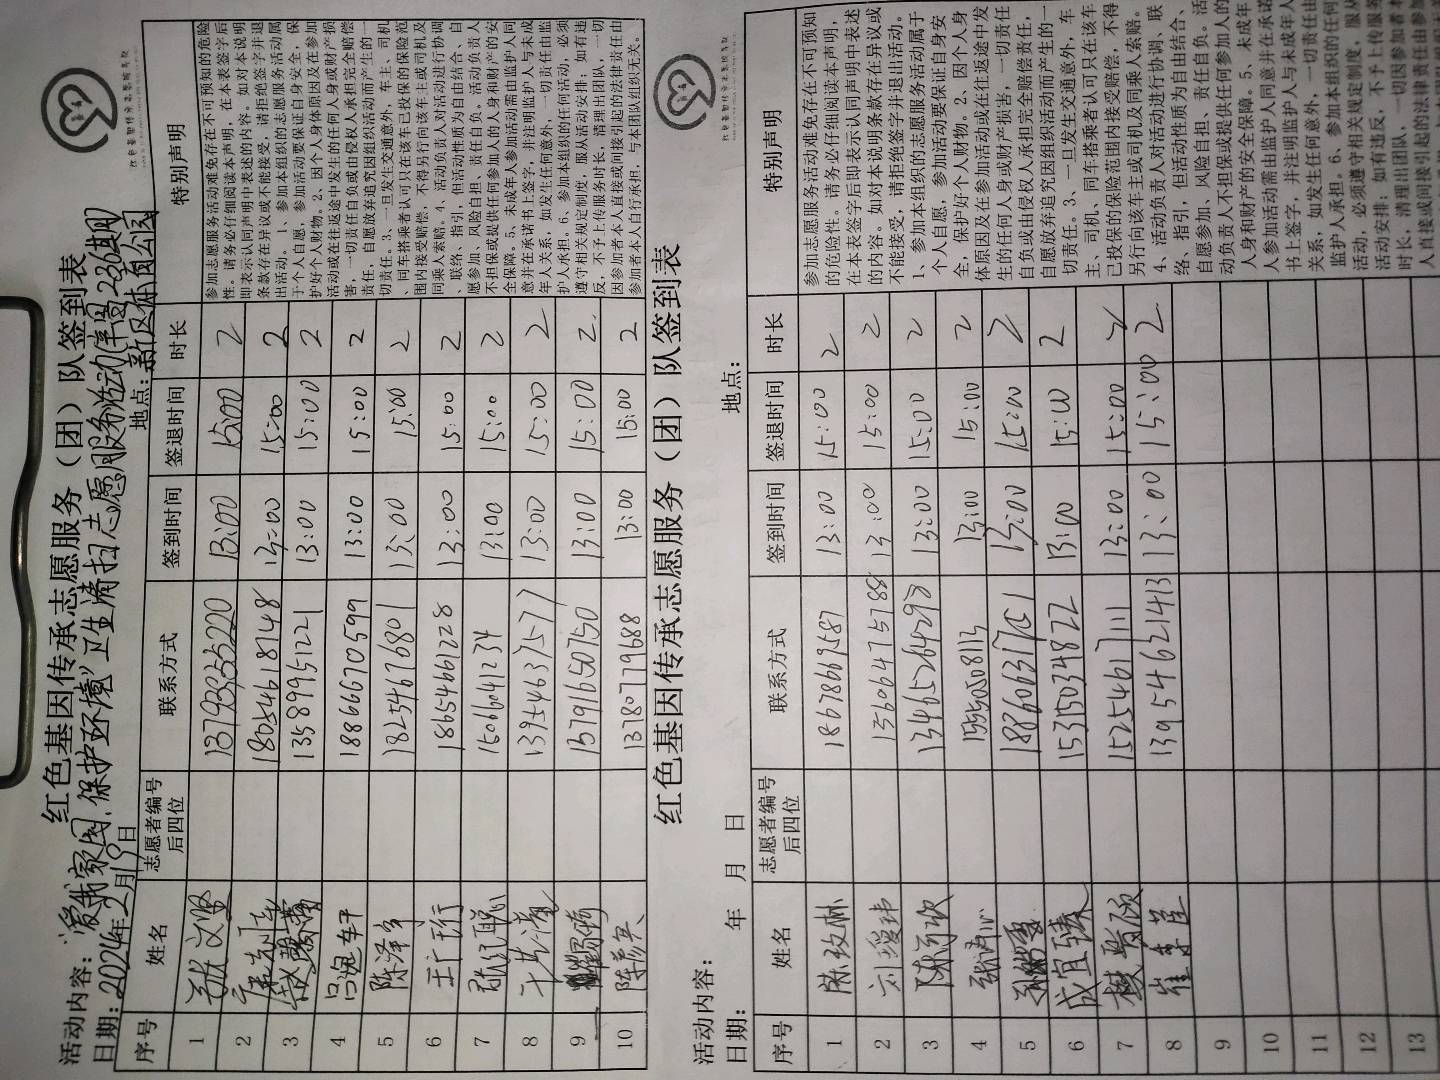 红色基因传承志愿服务（团）队签到表
活动内容：“爱我家园，保护环境”卫生清扫志愿服务活动
地点：
日期：2024年 月19日
序号 姓名 志愿者编号后四位 联系方式 签到时间 签退时间 时长 特别声明
1 13:00 15:00 2
2 18054618748 13:00 15:00 2
3 赵馨蕾 13589951221 13:00 15:00 2
4 18866670599 13:00 15:00 2
5 陈泽宇 18254667680 13:00 15:00 2
6 18654661228 13:00 15:00 2
7 15066041234 13:00 15:00 2
8 13954637577 13:00 15:00 2
9 13791650750 13:00 15:00 2
10 陈彦兵 13780779688 13:00 15:00 2
参加志愿服务活动难免存在不可预知的危险
性。请务必仔细阅读本声明，在本表签字后
即表示认同声明中表述的内容。如对本说明
条款存在异议或不能接受，请拒绝签字并退
出活动。1、参加本组织的志愿服务活动属
于个人自愿，参加活动要保证自身安全，保
护好个人财物。2、因个人身体原因及在参加
活动或在往返途中发生的任何人身或财产损
害，一切责任自负或由侵权人承担完全赔偿
责任，自愿放弃追究因组织活动而产生的一
切责任。3、一旦发生交通意外，车主、司机
、同车搭乘者认可只在该车已投保的保险范
围内接受赔偿，不得另行向该车主或司机及
同乘人索赔。4、活动负责人对活动进行协调
、联络、指引，但活动性质为自由结合、自
愿参加、风险自担、责任自负。活动负责人
不担保或提供任何参加人的人身和财产的安
全保障。5、未成年人参加活动需由监护人同
意并在承诺书上签字，并注明监护人与未成
年人关系，如发生任何意外，一切责任由监
护人承担。6、参加本组织的任何活动，必须
遵守相关规定制度，服从活动安排；如有违
反，不予上传服务时长，清理出团队，一切
因参加者本人直接或间接引起的法律责任由
参加者本人自行承担，与本团队组织无关。
红色基因传承志愿服务（团）队签到表
活动内容：
地点：
日期： 年 月 日
序号 姓名 志愿者编号后四位 联系方式 签到时间 签退时间 时长 特别声明
1 陈玫琳 18678669587 13:00 15:00 2
2 刘瑷玮 13606475788 13:00 15:00 2
3 13465264298 13:00 15:00 2
4 张沛心 15550508113 13:00 15:00 2
5 13:00 15:00 2
6 成宜臻 15315034872 13:00 15:00 2
7 15254617111 13:00 15:00 2
8 13954621413 13:00 15:00 2
9
10
11
12
13
参加志愿服务活动难免存在不可预知
的危险性。请务必仔细阅读本声明，
在本表签字后即表示认同声明中表述
的内容。如对本说明条款存在异议或
不能接受，请拒绝签字并退出活动。
1、参加本组织的志愿服务活动属于
个人自愿，参加活动要保证自身安
全，保护好个人财物。2、因个人身
体原因及在参加活动或在往返途中发
生的任何人身或财产损害，一切责任
自负或由侵权人承担完全赔偿责任，
自愿放弃追究因组织活动而产生的一
切责任。3、一旦发生交通意外，车
主、司机、同车搭乘者认可只在该车
已投保的保险范围内接受赔偿，不得
另行向该车主或司机及同乘人索赔。
4、活动负责人对活动进行协调、联
络、指引，但活动性质为自由结合、
自愿参加、风险自担、责任自负。活
动负责人不担保或提供任何参加人的
人身和财产的安全保障。5、未成年
人参加活动需由监护人同意并在承诺
书上签字，并注明监护人与未成年人
关系，如发生任何意外，一切责任由
监护人承担。6、参加本组织的任何
活动，必须遵守相关规定制度，服从
活动安排；如有违反，不予上传服务
时长，清理出团队，一切因参加者本
人直接或间接引起的法律责任由参加